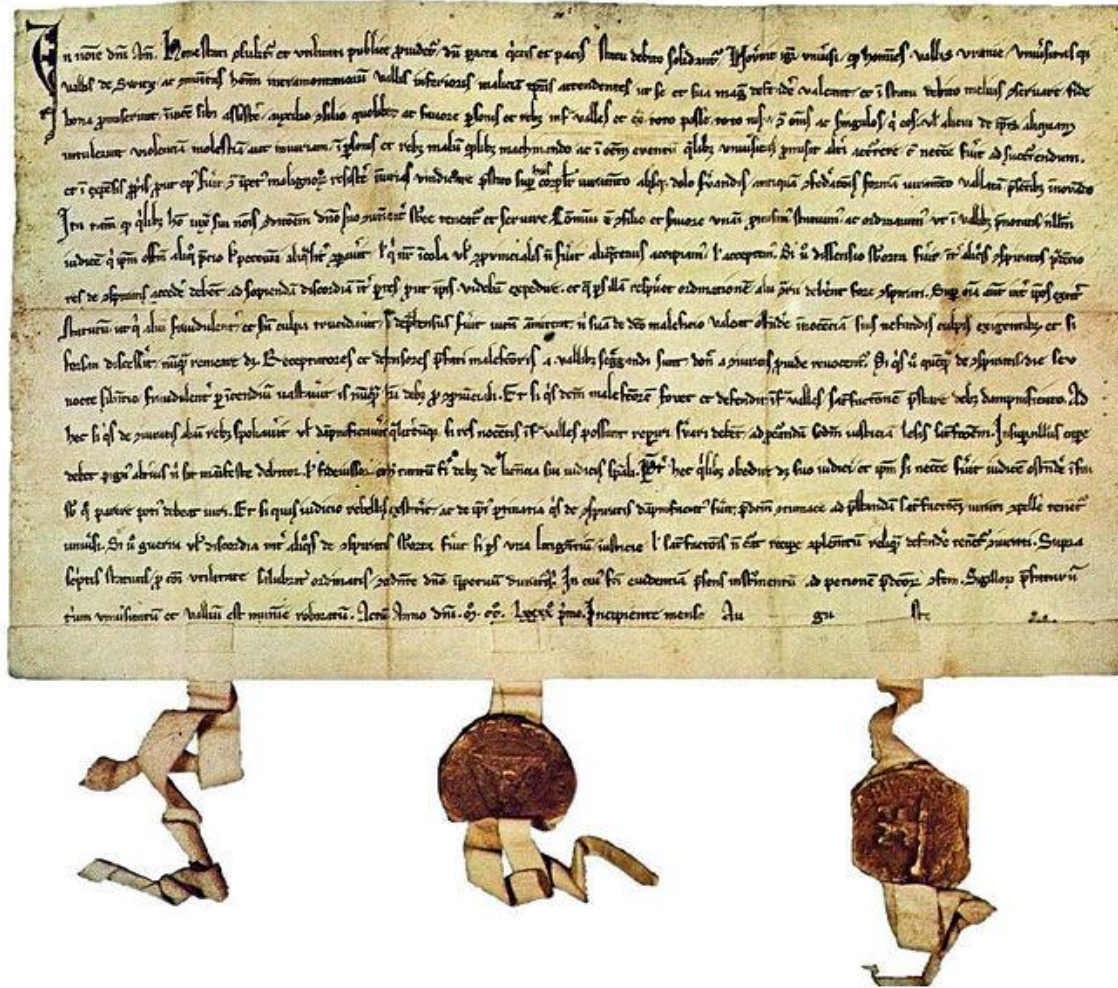 In noie dni Am̄. Honestati ꝯsulit̄ et utilitati publice ꝓuidet̄ dū pacta q̄etis et pacis statu debito solidant̄ Nov̄int igit̄ vniu̅si, ꝙ hom̄es vallis vranie vniu̅sitas q̄ꝫ
vallis de Switz ac mūitas hom̄m intramontanorū vallis inferioris maliciā tp̄is attendentes ut se et sua maḡ defēd̄e valeant et ī statu debito melius ꝯservare fide
bona ꝓmiser̄t īuicē sibi assist̄e auxilio ꝯsilio quolibꝫ ac favore ꝑsonis et rebꝫ inf̄ valles et ex̄ toto posse toto nisu ꝯ̄ om̄s ac singulos q̄ eos vl̓ alicui de ip̄is aliquam
intulerint violentiā molestiā aut iniuriam ī ꝑsonis et rebꝫ malū q̄dlibꝫ machinando ac ī oēm eventū q̄libꝫ vniu̅sitas ꝓmisit alt̄i accurrere cū necesse fūit ad succurrendum.
et ī expensis ꝓp̄is put op̄ fūit ꝯ̄ īpet malignorꝫ resist̄e īiurias vindicare p̄stito suꝑ hiis corꝑlit̄ iuramento absqꝫ dolo s̄vandis antiquā ꝯfed̄atōis formā iuramēto vallatā p̄sentibꝫ inovādo
Ita tamē ꝙ q̄libꝫ hō iux̄ sui nōis ꝯditōem dn̄o suo ꝯuenient̄ sb̄ee teneat̄ et servire Cōmuni ē ꝯsilio et favore vnāi ꝓmisim̄ statuim̄ ac ordinauim̄ ut ī vallibꝫ p̄notatis nullū
iudicē q̄ ip̄m officiū aliq̄ p̄cio vl̓ peccunia aliq̄lit̄ ꝯpauit̄ vl̓ q̄ nr̄ īcola vl̓ ꝯprovincialis nō fūit aliq̄tenus accipiam̄ vl̓ acceptem̄. Si ū dissensio suborta fūit īt̄ aliq̄s ꝯspiratos p̄dēciōr
res de ꝯspiratis acced̄e debēt ad sopiendā discordiā īt̄ ptes put ip̄is videbit̄ expedire. et q̄ ps illā respūet ordinationē alii ꝯt̄rii debēt fore ꝯspirati. Suꝑ oīa aūt int̄ ip̄os extitit
statutū ut q̄ aliū fraudulent̄ et sn̄ culpa trucidauit̄ si dep̄hensus fūit vitā amittat nisi suā de dc̄o maleficio valeat ostēd̄e īnocēciā suis nefandis culpis exigentibꝫ et si
forsan discessit̄ nūq̄ remeare dꝫ. Receptatores et defensores p̄fati malefcōris a vallibꝫ seg̓gandi sunt donec a ꝯiuratis ꝓuide revocent̄. Si q̄s ū quēq̄ de ꝯspiratis die seu
nocte silentio fraudulent̄ ꝑ īcendiū vastauit̄ is nūq̄ hr̄i debꝫ ꝓ ꝯprovinciali. Et si q̄s dc̄m malefcōrē fovet et defendit īf̄ valles satisfactionē p̄stare debꝫ dampnificato. Ad
hec si q̄s de ꝯiuratis aliū rebꝫ spoliauit̄ vl̓ dāpnificauit̄ q̄lit̄cūqꝫ si res nocētis īf̄ valles possunt reꝑiri s̄vari debēt ad ꝓcurādū scdm iusticiā lesis satisfactōem. Insuꝑ nullus capē
debet pig̓ alt̄ius nisi sit manifeste debitor vl̓ fideiussor et hoc tantū fi̓i debꝫ de licencia sui iudicis spāli. Pret̄ hec q̄libꝫ obedire dꝫ suo iudici et ip̄m si necē fūit iudicē ostēd̄e īfra
sb̄ q̄ parere poci̓ debeat iuri. Et si quis iudicio rebellis exstit̄it ac de ip̄i ꝑtinatia q̄s de ꝯspiratis dāpnificat̄ fūit p̄dc̄m ꝯtumace ad p̄standā satisfactōem iurati ꝯpell̓e tenēt̄
vniu̅si. Si ū guerra vl̓ discordia int̄ aliq̄s de ꝯspiratis suborta fūit si ps vna litigantiū iusticie vl̓ satisfactōis nō curat recipe ꝯplem̄tū reliq̄ defend̄e tenēt̄ ꝯiurati. Supra
sc̄ptis statutis ꝓ cōi vtilitate salubrit̄ ordinatis ꝯcedente dn̄o īꝑpetuū duraturis. In cuī fc̄i evidentiā p̄sens inst̄mentū ad peticionē p̄dcōrꝫ ꝯfcm̄. Sigillorꝫ p̄fatarū
triūm vniu̅sitatū et valliū est munimīe roboratū. Actū Anno dn̄i. M̊. CC̊. LXXXX̊ p̄mo. Incipiente mense Au gu sto